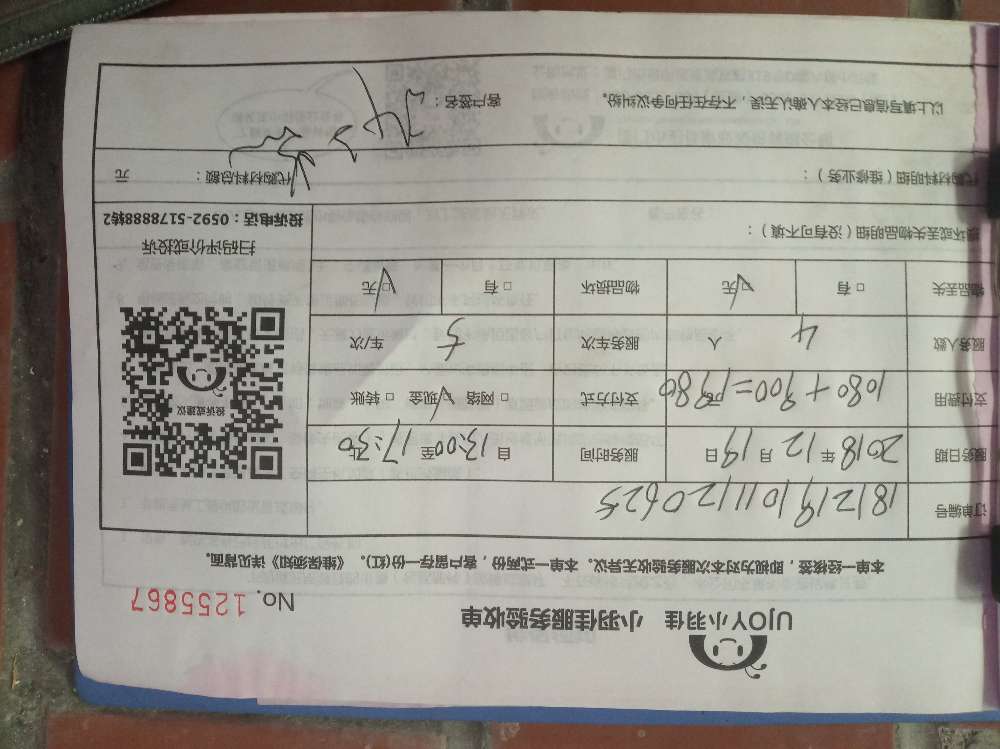 UJOY小羽佳 小羽佳服务验收单
No. 1255867
本单一经签核，即视为对本次服务验收无异议。本单一式两份，客户留存一份(红)。《维保须知》详见背面。
订单编号 181219101112062S
服务日期 2018年12月19日 服务时间 自13:00至17:30止
支付费用 1080+900=1980 支付方式 □网络 ☑现金 □转账
服务人数 4 人 服务车次 5 车/次
物品丢失 □有 ☑无 物品损坏 □有 ☑无
投诉或建议
扫码评价或投诉
投诉电话：0592-5178888转2
损坏或丢失物品明细（没有可不填）：
代购材料明细（维修业务）： 代购材料总额： 元
以上填写信息已经本人确认无误，不存在任何争议纠纷。 客户签名：